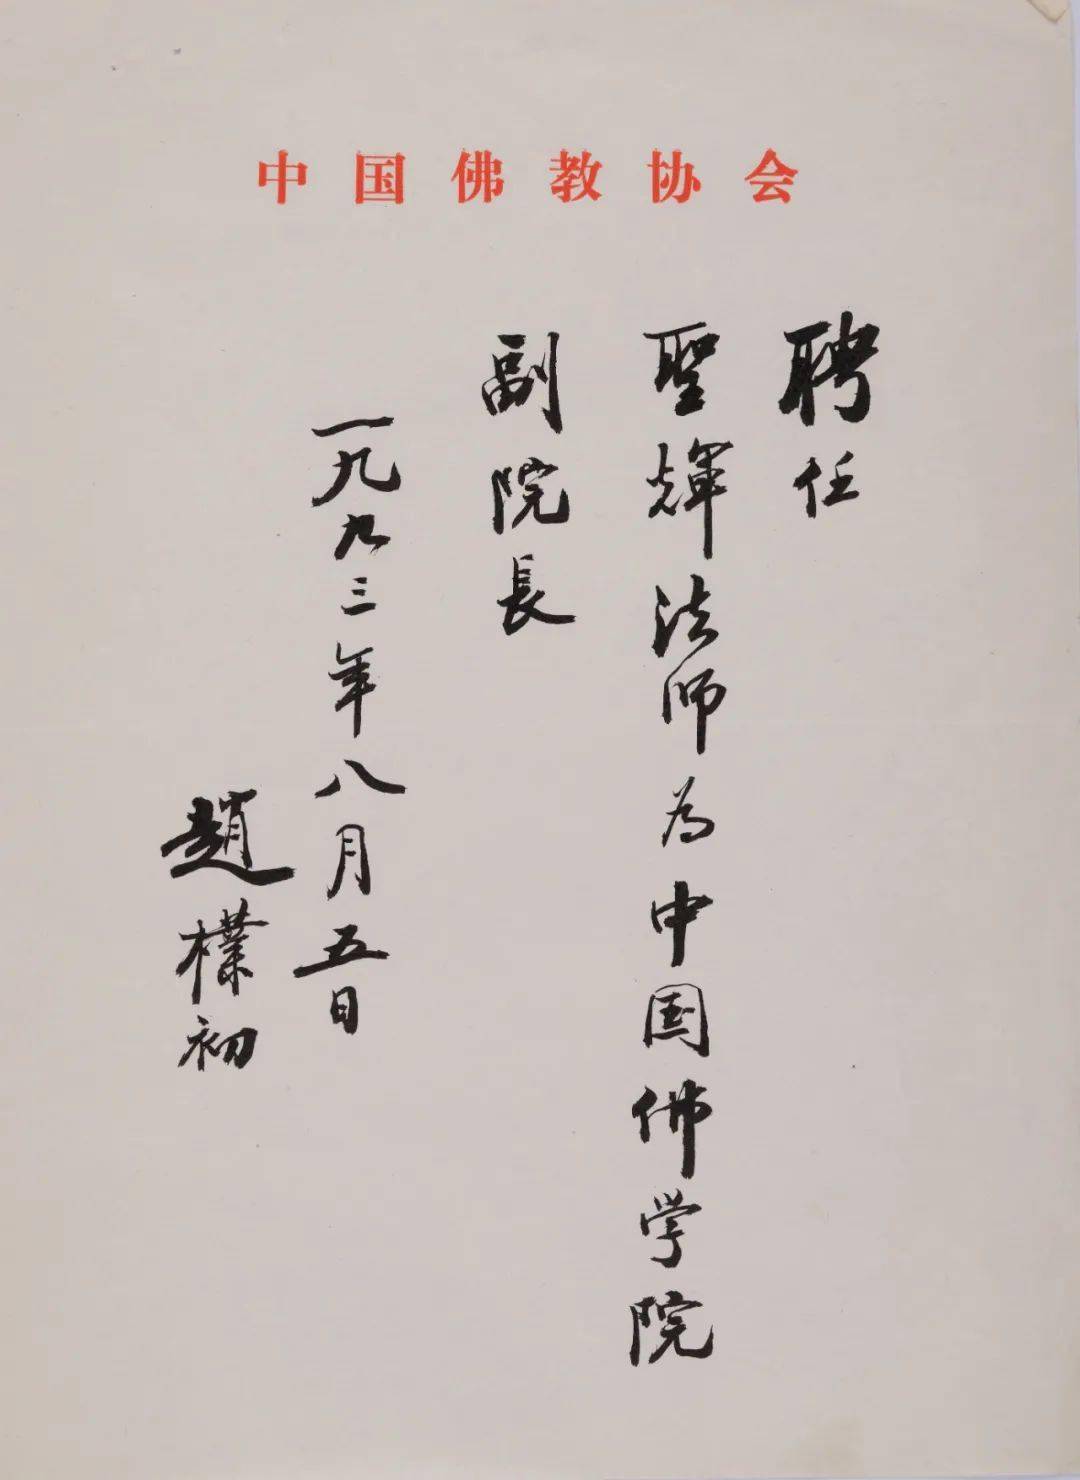 中国佛教协会
聘任
聖輝法师为中国佛学院
副院長
一九九三年八月五日
趙樸初